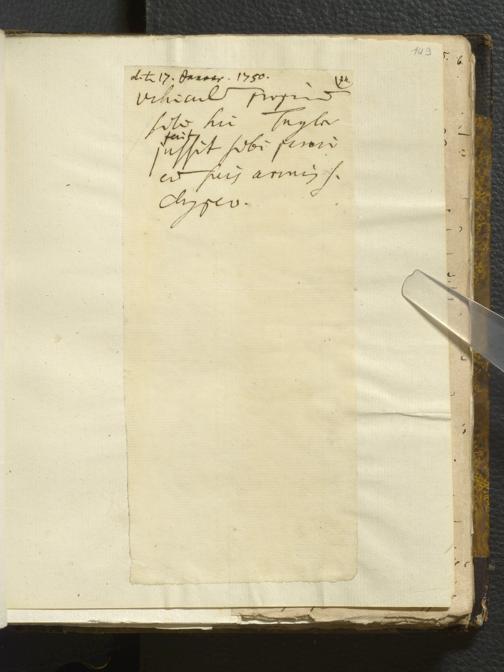 149
d. 17. Januar. 1750.
vehiculū propriū
sibi hic Taylor
fieri
jussit sibi
cū suis armis s.
clypeo.